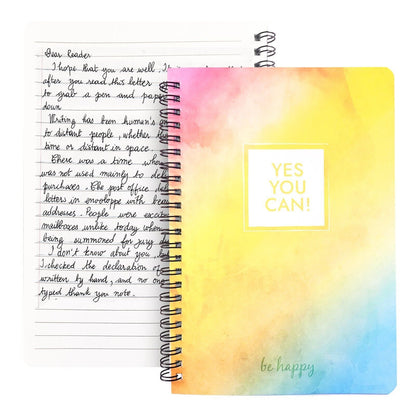 Dear Reader
I hope that you are well.
after you read this letter
to grab a pen and paper
down.
Writing has been human's
to distant people, whether
time or distant in space.
There was a time when
was not used mainly to
purchases. The post office
letters in enveloppe with
addresses. People were
mailboxes unlike today when
being summoned for jury
I don't know about you
I checked the declaration of
written by hand, and no one
typed thank you note.
YES
YOU
CAN!
be happy